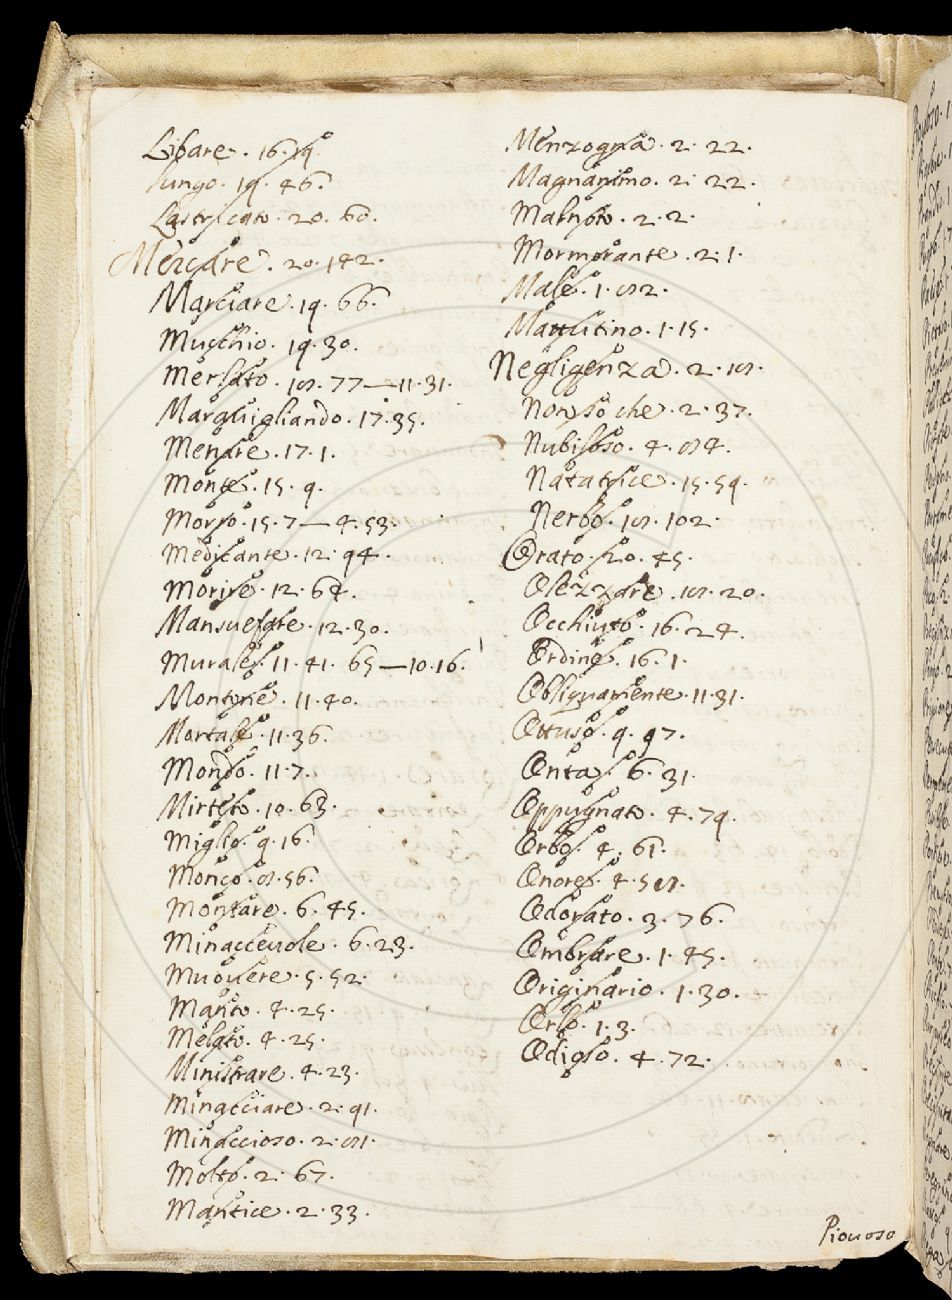 Libare. 16. 19.
Lungo. 19. 46.
Lastricato. 20. 60.
Mercare. 20. 142.
Marciare. 19. 66.
Muschio. 19. 30.
Mersato. 18. 77 — 11. 31.
Marauigliando. 17. 35.
Menare. 17. 1.
Monte. 15. 9.
Morso. 15. 7 — 4. 53.
Medicante. 12. 94.
Morire. 12. 64.
Mansuefare. 12. 30.
Murale. 11. 41. 65 — 10. 16.
Montone. 11. 40.
Mortale. 11. 36.
Mondo. 11. 7.
Mirteto. 10. 63.
Miglio. 9. 16.
Monco. 8. 56.
Montare. 6. 45.
Minacceuole. 6. 23.
Muouere. 5. 52.
Manto. 4. 25.
Melato. 4. 25.
Ministrare. 4. 23.
Minacciare. 2. 91.
Minaccioso. 2. 81.
Molto. 2. 67.
Mantice. 2. 33.
Menzogna. 2. 22.
Magnanimo. 2. 22.
Malnoto. 2. 2.
Mormorante. 2. 1.
Male. 1. 82.
Mattutino. 1. 15.
Negligenza. 2. 18.
Non so che. 2. 37.
Nubiloso. 4. 84.
Natatrice. 15. 59.
Nerbo. 18. 102.
Orato. 20. 45.
Olezzare. 18. 20.
Occhiuto. 16. 24.
Ordine. 16. 1.
Obliquamente. 11. 31.
Ottuso. 9. 97.
Onta. 6. 31.
Oppugnato. 4. 79.
Orbo. 4. 61.
Onore. 4. 58.
Odorato. 3. 76.
Ombrare. 1. 45.
Originario. 1. 30.
Orlo. 1. 3.
Odioso. 4. 72.
Piouoso